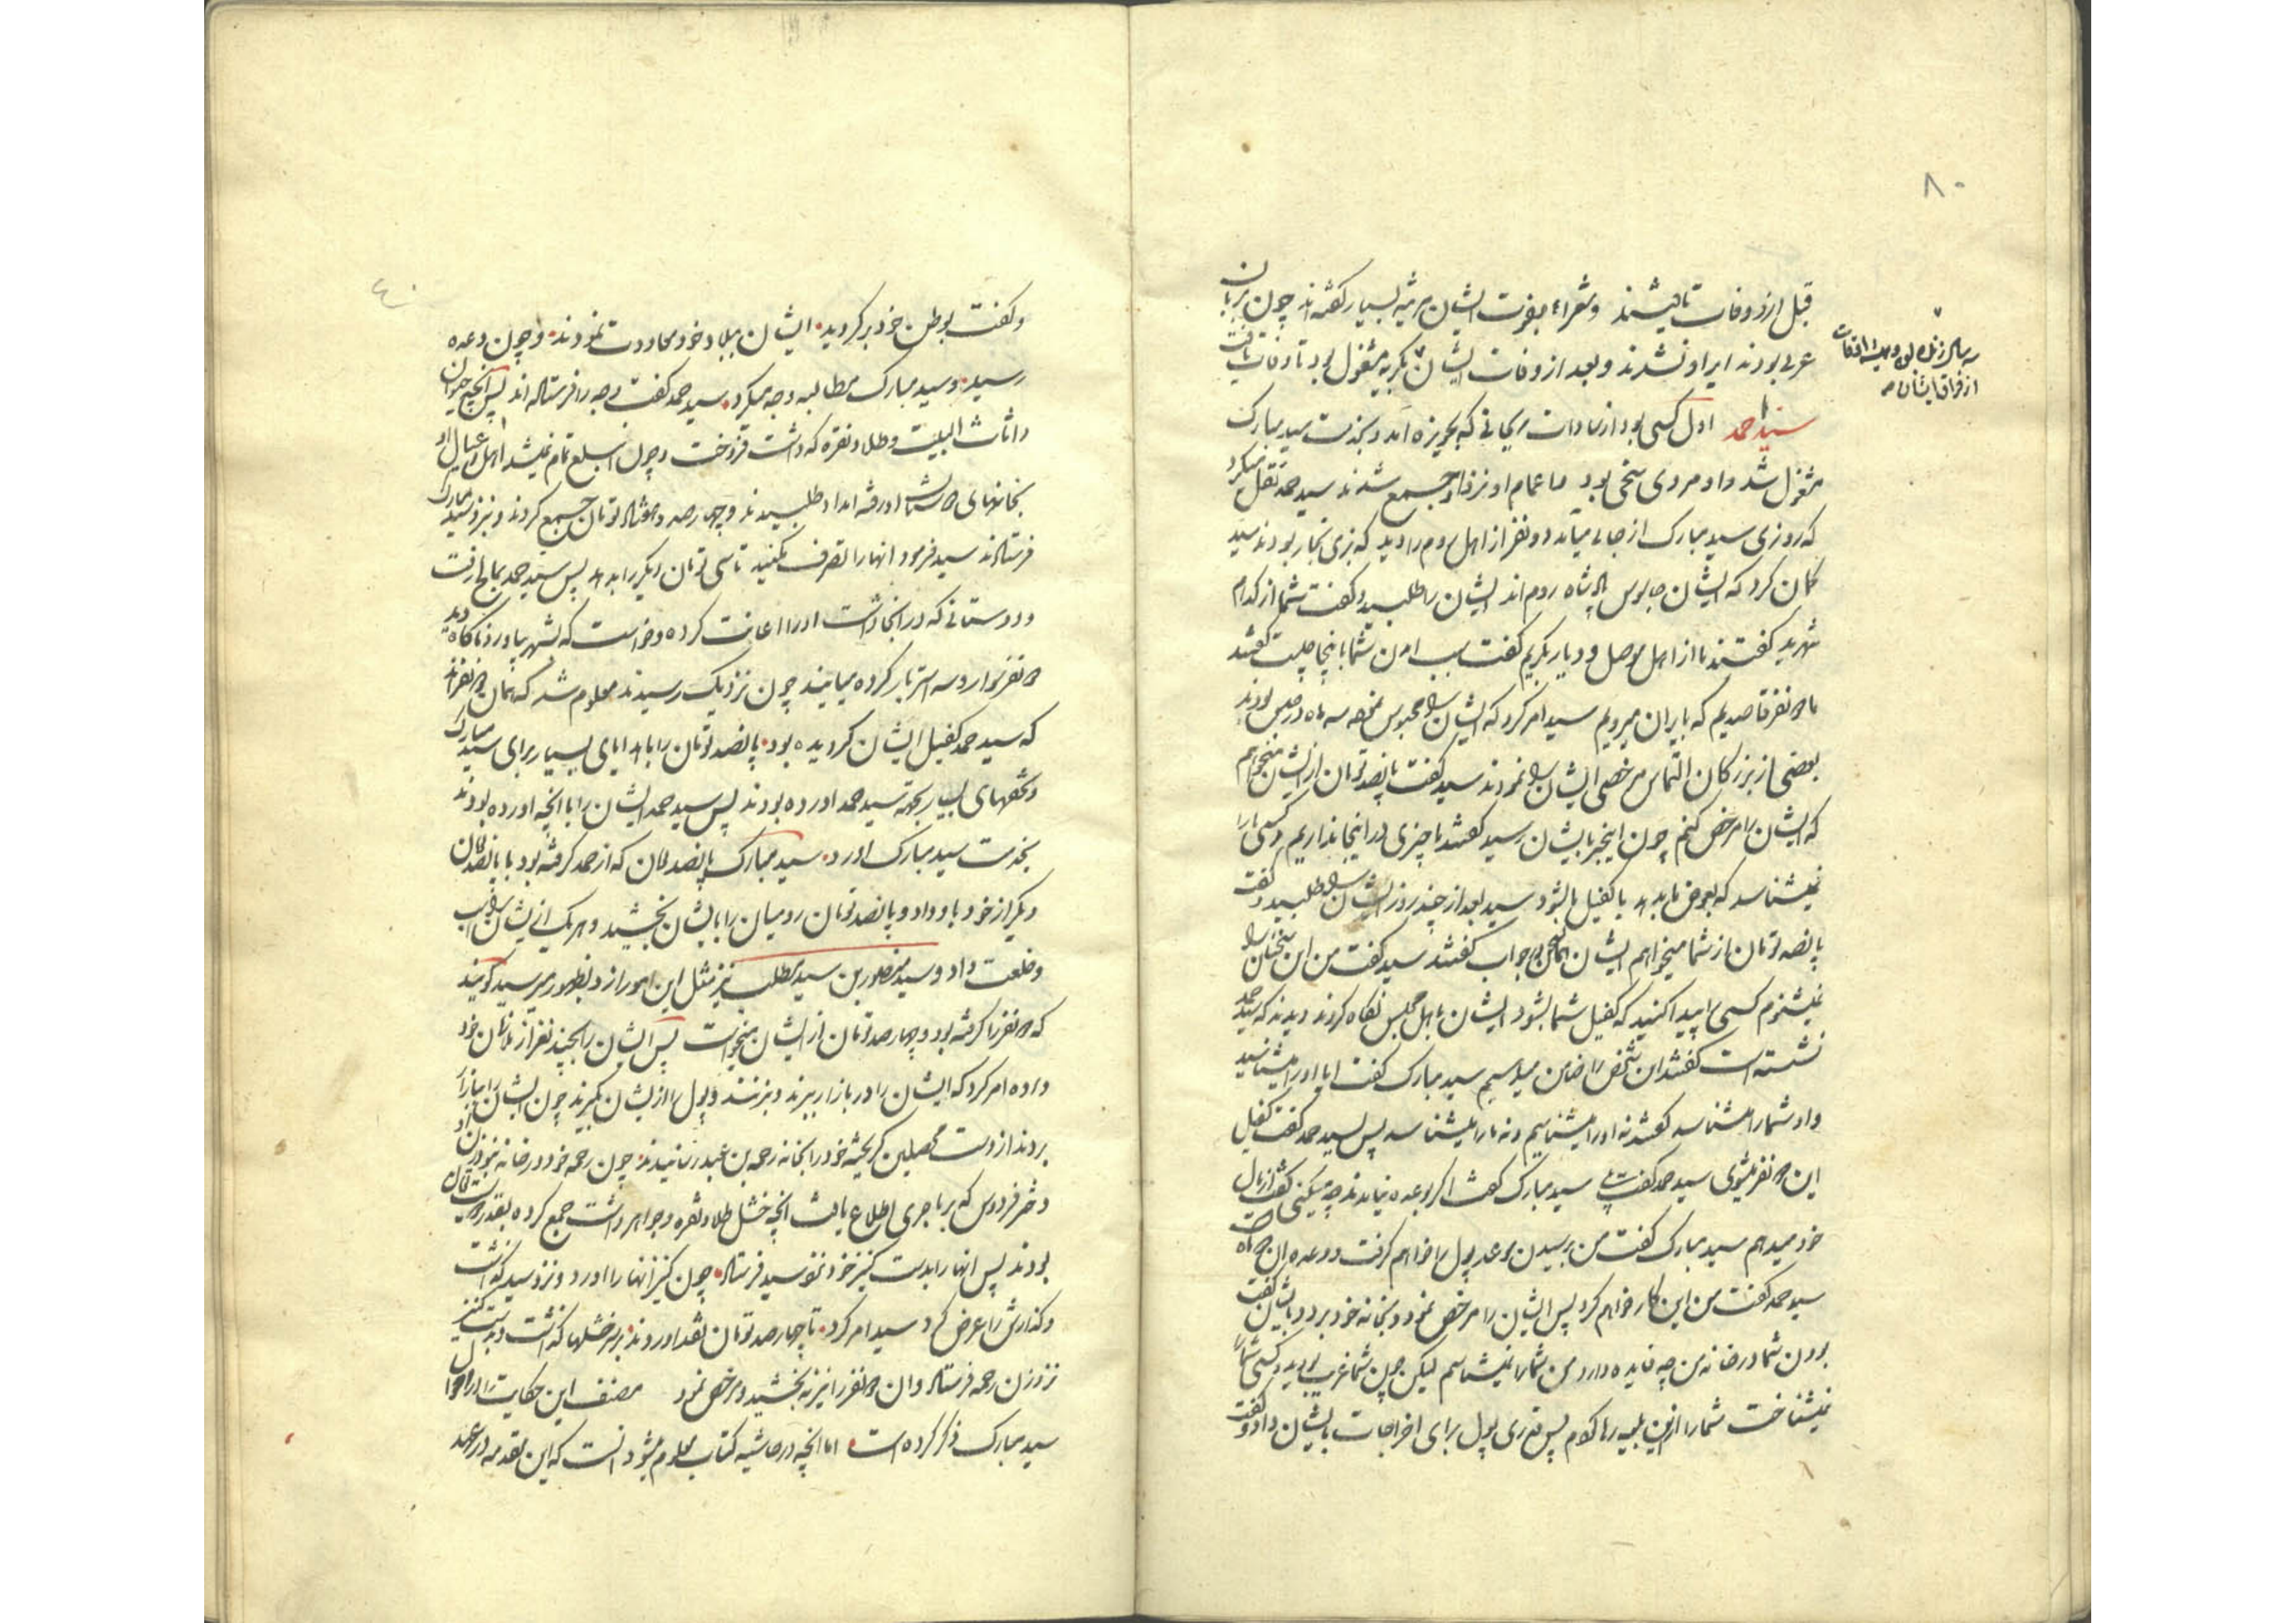 ۸۰
قبل از وفات تالیشند وشعراء بفوت ایشان مرثیه بسیار گفته‌اند چون بزبان
عربی بودند ایراد نشدند و بعد از وفات ایشان بگریه مشغول بود تا وفات یافت
سه سال زنده بود و همیشه اوقات
از فراق ایشان
سید احمد اول کسی بود از سادات که بحویزه آمد و بخدمت سید مبارک
مشغول شد و او مردی سخی بود اعمام او نزد او جمع شدند سید احمد نقل میکرد
که روزی سید مبارک از جائی میآمد دو نفر از اهل روم را دید که بزی تجار بودند سید
گمان کرد که ایشان جاسوس پادشاه روم‌اند ایشان را طلبید و گفت شما از کدام
شهرید گفتند ما از اهل موصل و دیار بکریم گفت سبب آمدن شما باینجا چیست گفتند
ما دو نفر قاصدیم که بایران میرویم سید امر کرد که ایشان را محبوس نموده سه ماه در حبس بودند
بعضی از بزرگان التماس مرخصی ایشان را نمودند سید گفت پانصد تومان از ایشان میخواهم
که ایشان را مرخص کنم چون اینخبر بایشان رسید گفتند ما چیزی در اینجا نداریم و کسی ما را
نمیشناسد که بعوض ما بدهد یا کفیل ما شود سید بعد از چند روز ایشان را طلبید و گفت
پانصد تومان از شما میخواهم ایشان همان جواب گفتند سید گفت من این سخنان را
نمیشنوم کسی را پیدا کنید که کفیل شما بشود ایشان باهل مجلس نگاه کردند دیدند که سید احمد
نشسته است گفتند این شخص را ضامن میدهیم سید مبارک گفت ایا او را میشناسید
و او شما را میشناسد گفتند نه او را میشناسیم و نه ما را میشناسد پس بسید احمد گفت کفیل
این دو نفر میشوی سید احمد گفت بلی سید مبارک گفت اگر بوعده نیامدند چه میکنی گفت از مال
خود میدهم سید مبارک گفت من برسیدن موعد پول را خواهم گرفت و وعده ان دو ماه است
سید احمد گفت من این کار خواهم کرد پس ایشان را مرخص نمود و بخانه خود برد و بایشان گفت
بودن شما در خانه من چه فایده دارد من شما را نمیشناسم لیکن چون شما غریب بودید و کسی شما را
نمیشناخت شما را ازین بلیه رها کردم پس قدری پول برای اخراجات بایشان داد و گفت
۴۰
و گفت بوطن خود برگردید ایشان ببلاد خود معاودت نمودند و چون وعده
رسید و سید مبارک مطالبه وجه میکرد سید احمد گفت وجه را فرستاده‌اند پس آنچه حیوان
و اثاث البیت و طلا و نقره که داشت فروخت و چون مبلغ تمام نمیشد اهل و عیال او
بخانهای رفته امداد طلبیدند و چهارصد و هفتاد تومان جمع کردند و نزد سید مبارک
فرستادند سید فرمود انها را تصرف نکنید تا سی تومان دیگر را بدهد پس سید احمد رفت
و دوستانی که در انجا داشت او را اعانت کرده و خواست که بشهر بیاورد ناگاه دید
دو نفر سوار و سه استر بار کرده میایند چون نزدیک رسیدند معلوم شد که همان دو نفرند
که سید احمد کفیل ایشان گردیده بود پانصد تومان را با هدایای بسیار برای سید مبارک
و تحفهای بسیار بجهة سید احمد اورده بودند پس سید احمد ایشان را با انچه اورده بودند
بخدمت سید مبارک اورد سید مبارک پانصد تومان که از احمد گرفته بود با پانصد تومان
دیگر از خود باو داد و پانصد تومان رومیان را بایشان بخشید و هر یک از ایشان را اسب
و خلعت داد و سید منصور بن سید مطلب نیز مثل این امور ازو بظهور میرسید گویند
که دو نفر را گرفته بود و چهارصد تومان از ایشان میخواست پس ایشان را بچند نفر از ملازمان خود
داده امر کرد که ایشان را در بازار ببرند و بزنند و پول را از ایشان بگیرند چون ایشان را ببازار
بردند از دست محصلین گریخته خود را بخانه رحمه بن رسانیدند چون رحمه خود در خانه نبود زن او
دختر فردوس که بر ماجری اطلاع یافت انچه خشل طلا و نقره و جواهر داشت جمع کرده بقدر
بودند پس انها را بدست کنیز خود نزد سید فرستاد چون کنیز انها را اورد و نزد سید گذاشت
و گذارش را عرض کرد سید امر کرد تا چهارصد تومان نقد اوردند بر سر خشلها گذاشت و بدست کنیز
نزد زن رحمه فرستاد و ان دو نفر را نیز به بخشید و مرخص نمود مصنف این حکایت را در احوال
سید مبارک ذکر کرده است اما انچه در حاشیه کتاب معلوم میشود انست که این مقدمه در عهد